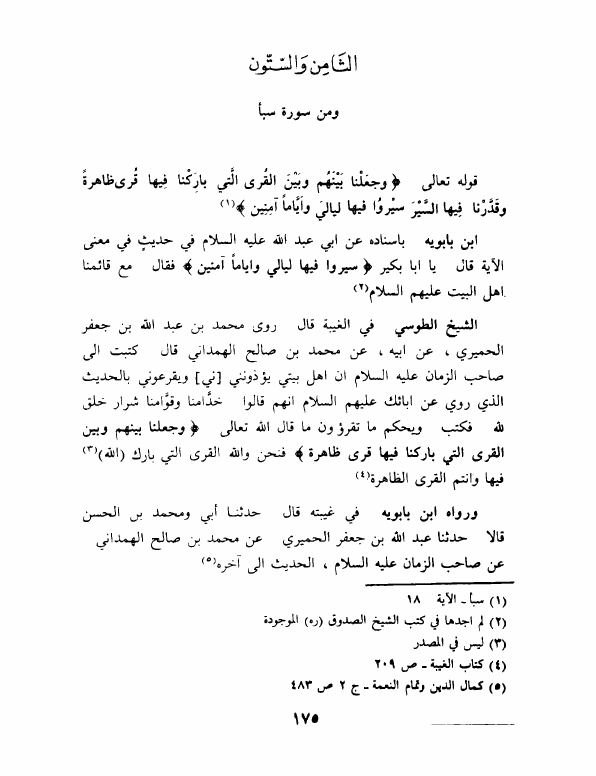 الثَّامِن وَالسّتّون
ومن سورة سبأ
قوله تعالى ﴿ وجعَلْنا بَيْنَهُم وبَيْنَ القُرى الَّتي باركْنا فيها قُرى ظاهرةً
وقَدَّرْنا فيها السَّيْرَ سيْروُا فيها ليالَي وأيَّاماً آمِنِين ﴾(١)
ابن بابويه باسناده عن ابي عبد الله عليه السلام في حديثٍ في معنى
الآية قال يا ابا بكير ﴿ سيروا فيها ليالي واياماً آمنين ﴾ فقال مع قائمنا
اهل البيت عليهم السلام(٢)
الشيخ الطوسي في الغيبة قال روى محمد بن عبد الله بن جعفر
الحميري ، عن ابيه ، عن محمد بن صالح الهمداني قال كتبت الى
صاحب الزمان عليه السلام ان اهل بيتي يؤذونني [ني] ويقرعوني بالحديث
الذي روي عن ابائك عليهم السلام انهم قالوا خدَّامنا وقوَّامنا شرار خلق
لله فكتب ويحكم ما تقرؤ ون ما قال الله تعالى ﴿ وجعلنا بينهم وبين
القرى التي باركنا فيها قرى ظاهرة ﴾ فنحن والله القرى التي بارك (الله)(٣)
فيها وانتم القرى الظاهرة(٤)
ورواه ابن بابويه في غيبته قال حدثنا أبي ومحمد بن الحسن
قالا حدثنا عبد الله بن جعفر الحميري عن محمد بن صالح الهمداني
عن صاحب الزمان عليه السلام ، الحديث الى آخره(٥)
(١) سبأ ـ الآية ١٨
(٢) لم اجدها في كتب الشيخ الصدوق (ره) الموجودة
(٣) ليس في المصدر
(٤) كتاب الغيبة ـ ص ٢٠٩
(٥) كمال الدين وتمام النعمة ـ ج ٢ ص ٤٨٣
١٧٥